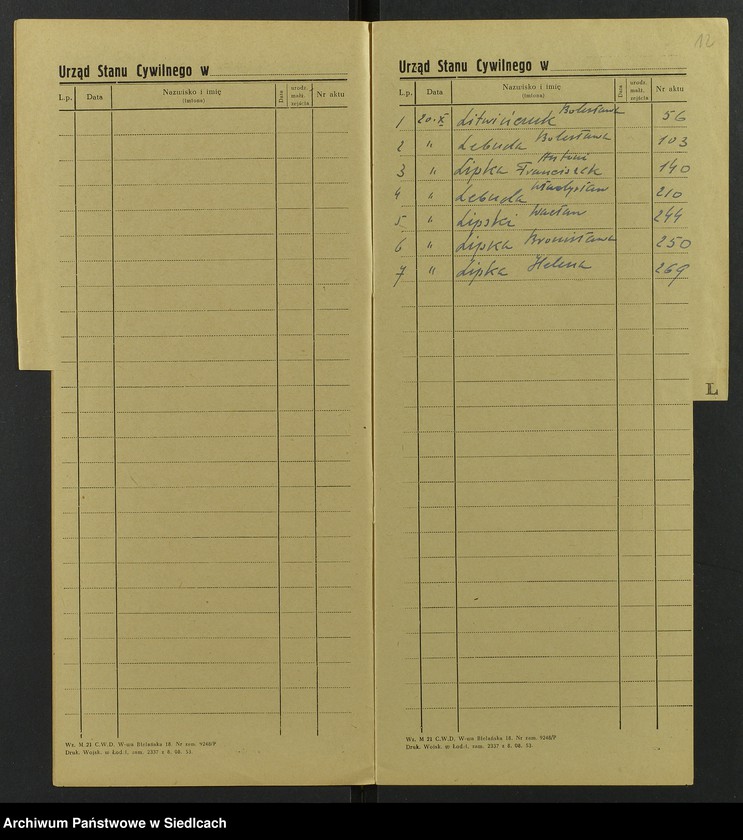 Urząd Stanu Cywilnego w
L.p. Data Nazwisko i imię (imiona) Data urodz. małż. zejścia Nr aktu
Wz. M 21 C.W.D. W-wa Bielańska 18. Nr zam. 9240/P
Druk. Wojsk. w Łodzi, zam. 2337 z 8. 08. 53
12
Urząd Stanu Cywilnego w
L.p. Data Nazwisko i imię (imiona) Data urodz. małż. zejścia Nr aktu
1 20.X Litwiniuk Bolesława 56
2 " Lebuda Bolesława 103
3 " Lipka Antoni Franciszek 140
4 " Lebuda Władysław 210
5 " Lipski Wacław 244
6 " Lipka Bronisława 250
7 " Lipka Helena 269
L
Wz. M 21 C.W.D. W-wa Bielańska 18. Nr zam. 9240/P
Druk. Wojsk. w Łodzi, zam. 2337 z 8. 08. 53
Archiwum Państwowe w Siedlcach